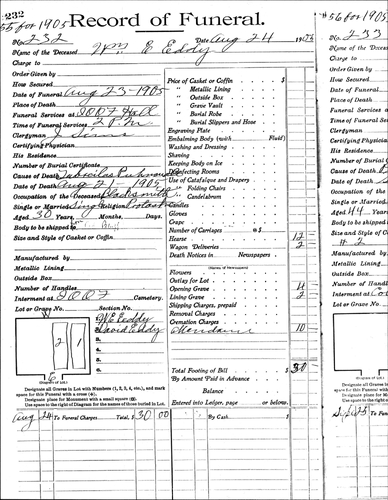 232
55 for 1905
Record of Funeral.
No. 232 Date Aug 24 1905
Name of the Deceased Wm E Eddy
Charge to
Order Given by
How Secured
Date of Funeral Aug 23-1905
Place of Death
Funeral Services at IOOF Hall
Time of Funeral Services 2 P.M.
Clergyman J Sims
Certifying Physician
His Residence
Number of Burial Certificate
Cause of Death
Date of Death Aug 21-1905
Occupation of the Deceased Blacksmith
Single or Married Single
Aged 30 Years, Months, Days.
Body to be shipped to
Size and Style of Casket or Coffin
Manufactured by
Metallic Lining
Outside Box
Number of Handles
Interment at IOOF Cemetery.
Lot or Grave No. Section No.
2 1
6
1. W E Eddy
2. David Eddy
3.
4.
5.
6.
(Diagram of Lot.)
Designate all Graves in Lot with Numbers (1, 2, 3, 4, etc.), and mark
space for this Funeral with a cross (+).
Designate place for Monument with a small square (□).
Use space to the right of Diagram for the names of those buried in Lot.
Price of Casket or Coffin $
" Metallic Lining
" Outside Box
" Grave Vault
" Burial Robe
" Burial Slippers and Hose
Engraving Plate
Embalming Body (with Fluid)
Washing and Dressing
Shaving
Keeping Body on Ice
Disinfecting Rooms
Use of Catafalque and Drapery
" Folding Chairs
" Candelabrum
Candles
Gloves
Crape
Number of Carriages @ $
Hearse 12
Wagon Deliveries 2
Death Notices in Newspapers
(Names of Newspapers)
Flowers
Outlay for Lot
Opening Grave 4
Lining Grave 2
Shipping Charges, prepaid
Removal Charges
Cremation Charges
Attendance 10
Total Footing of Bill $ 30
By Amount Paid in Advance
Balance
Entered into Ledger, page or below.
Aug 24 To Funeral Charges Total, $ 30 00 By Cash $
56 for 1905
No. 233
Name of the
Charge to
Order Given
How Secured
Date of Funeral
Place of Death
Funeral Services
Time of Funeral
Clergyman
Certifying Physician
His Residence
Number of Burial
Cause of Death
Date of Death
Occupation of the
Single or Married
Aged 44 Years,
Body to be shipped
Size and Style of
# 2
Manufactured
Metallic Lining
Outside Box
Number of Handles
Interment at
Lot or Grave No.
(Diagram of
Designate all Gr
space for this Fune
Designate place
Use space to the
To Funeral